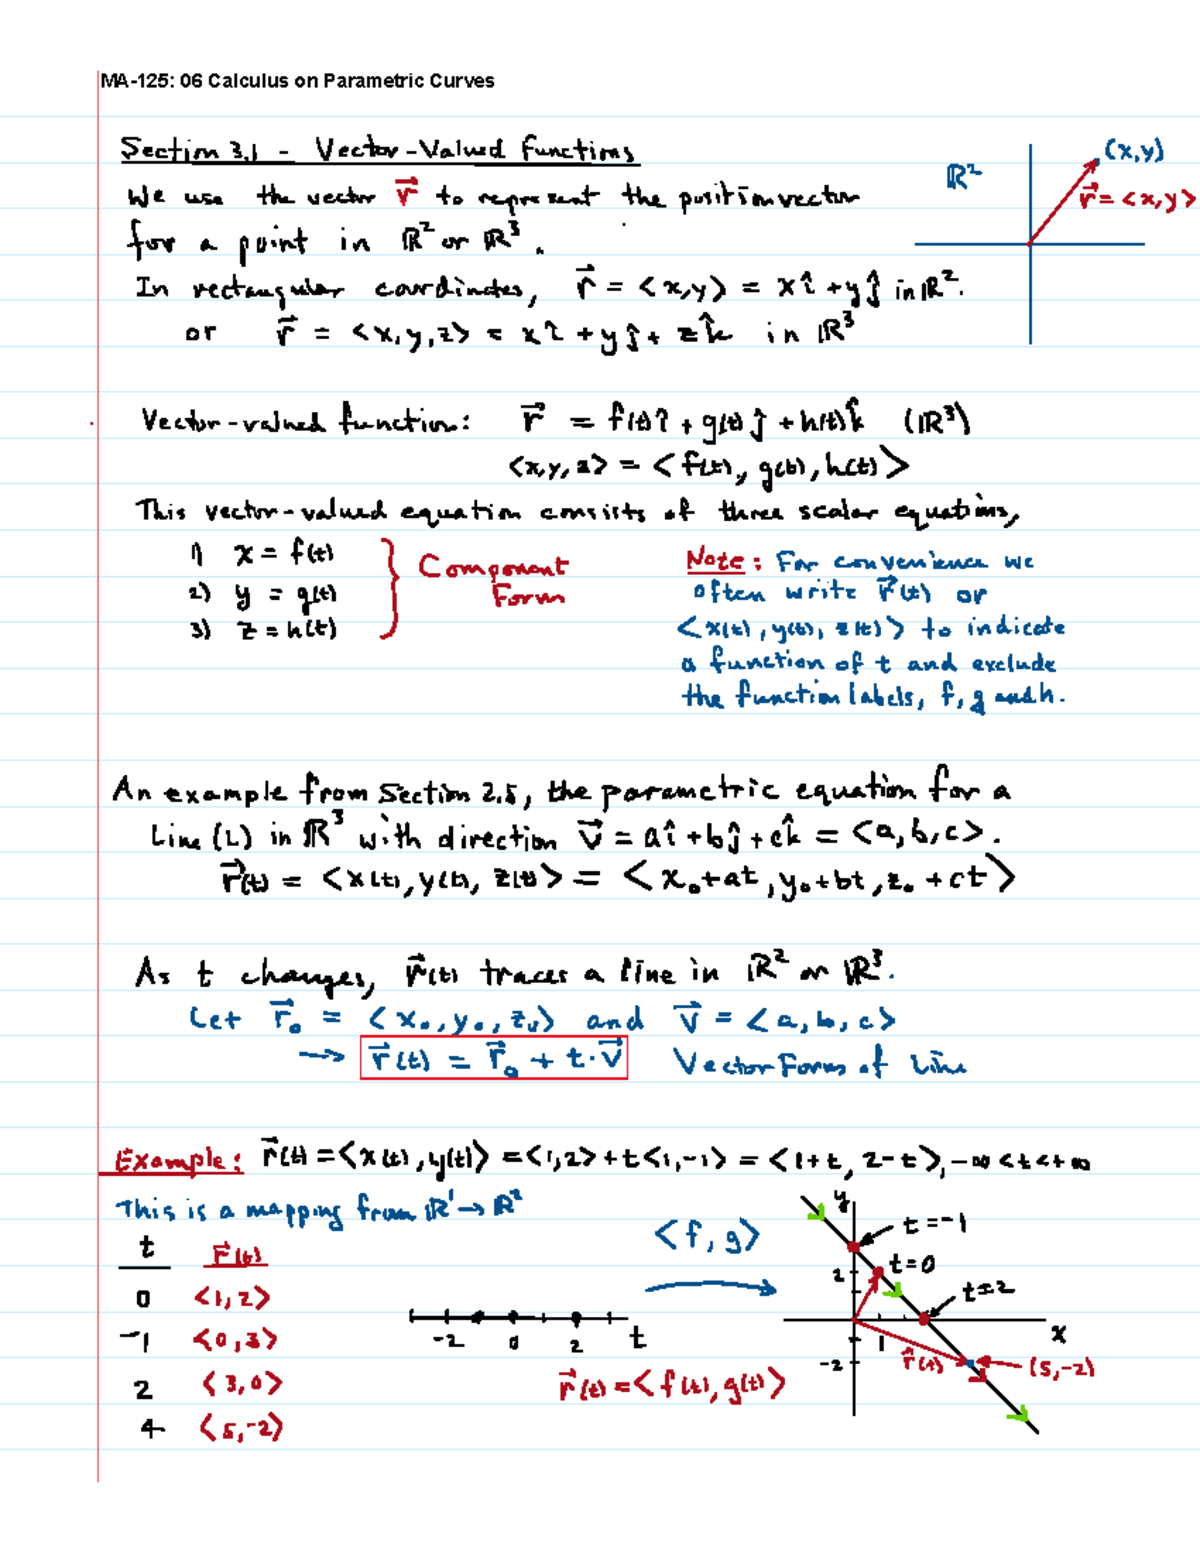 MA-125: 06 Calculus on Parametric Curves
Section 3.1 - Vector-Valued Functions
We use the vector r⃗ to represent the position vector
for a point in ℝ² or ℝ³.
In rectangular coordinates, r⃗ = <x,y> = xî + yĵ in ℝ².
or r⃗ = <x,y,z> = xî + yĵ + zk̂ in ℝ³
ℝ²
(x,y)
r⃗ = <x,y>
Vector-valued function: r⃗ = f(t)î + g(t)ĵ + h(t)k̂ (ℝ³)
<x,y,z> = <f(t), g(t), h(t)>
This vector-valued equation consists of three scalar equations,
1) x = f(t)
2) y = g(t)
3) z = h(t)
Component
Form
Note: For convenience we
often write r⃗(t) or
<x(t), y(t), z(t)> to indicate
a function of t and exclude
the function labels, f, g and h.
An example from Section 2.5, the parametric equation for a
Line (L) in ℝ³ with direction v⃗ = aî + bĵ + ck̂ = <a,b,c>.
r⃗(t) = <x(t), y(t), z(t)> = <x₀+at, y₀+bt, z₀+ct>
As t changes, r⃗(t) traces a line in ℝ² or ℝ³.
Let r⃗₀ = <x₀, y₀, z₀> and v⃗ = <a, b, c>
→ r⃗(t) = r⃗₀ + t·v⃗ Vector Form of Line
Example: r⃗(t) = <x(t), y(t)> = <1,2> + t<1,-1> = <1+t, 2-t>, -∞ < t < +∞
This is a mapping from ℝ¹ → ℝ²
t r⃗(t)
0 <1,2>
-1 <0,3>
2 <3,0>
4 <5,-2>
-2 0 2 t
<f,g>
r⃗(t) = <f(t), g(t)>
y
t=-1
2
t=0
t=2
1
x
-2
r⃗(t)
(5,-2)